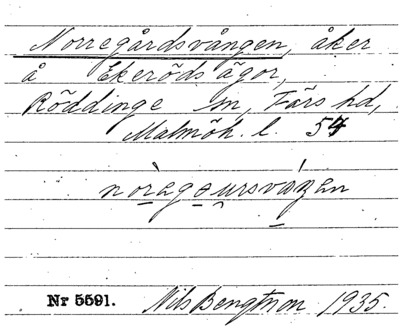 Norregårdsvången, åker
å Ekeröds ägor,
Röddinge sn, Färs hd,
Malmöh. l. 54
Nr 5591. Nils Bengtsson 1935.